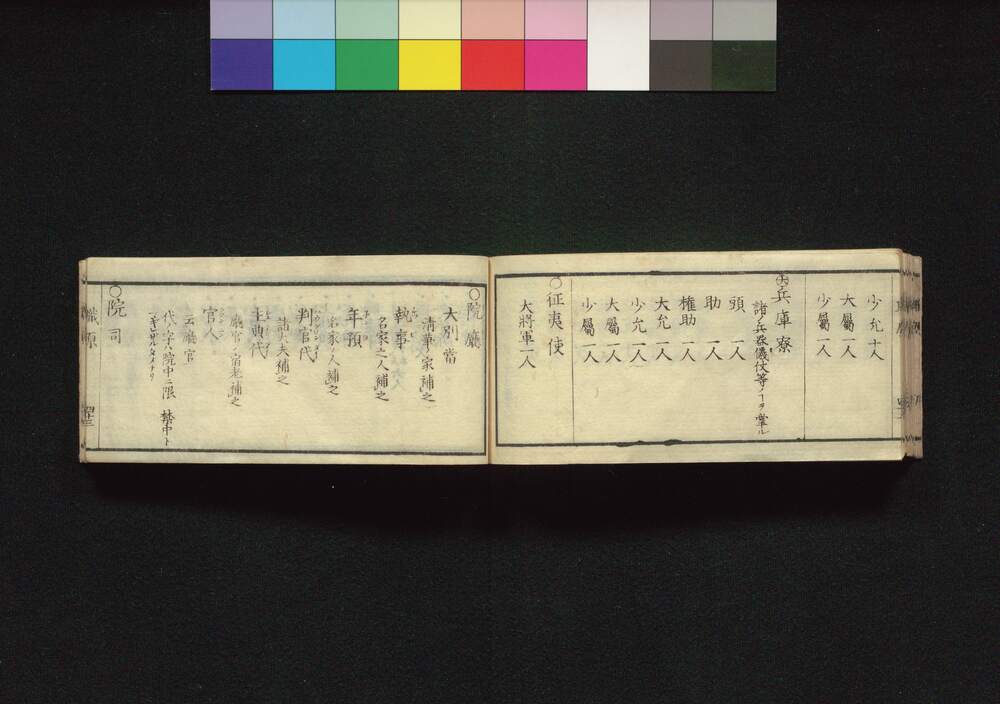 少允十人
大屬一人
少屬一人
兵庫寮
諸ノ兵器儀仗等ノヿヲ掌ル
頭 一人
助 一人
権助 一人
大允 一人
少允 一人
大屬 一人
少屬 一人
○征夷使
大將軍一人
○院廳
大別當
清華ノ家補之
執事
名家之人補之
年預
名家ノ人補之
判官代
諸大夫補之
主典代
廳官ノ宿老補之
官人
云廳官
代ノ字ハ院中ニ限 禁中ト
○院司
職原